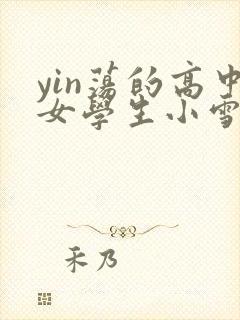 yin蕩的高中
女學生小雪
禾乃